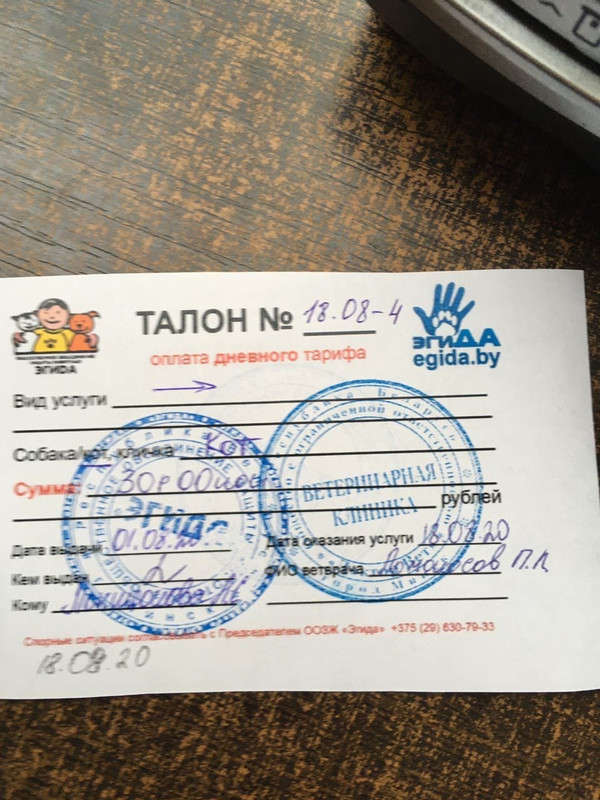 ТАЛОН № 18.08-4
ЭГИДА
ЭГИДА
egida.by
оплата дневного тарифа
Вид услуги
Собака/кот, кличка кот
Сумма: 30р 00коп
рублей
Дата выдачи 01.08.20. Дата оказания услуги 18.08.20
Кем выдан ФИО ветврача П.П.
Кому
Спорные ситуации согласовывать с Председателем ООЗЖ «Эгида» +375 (29) 630-79-33
18.08.20
ЭГИДА
ВЕТЕРИНАРНАЯ
КЛИНИКА